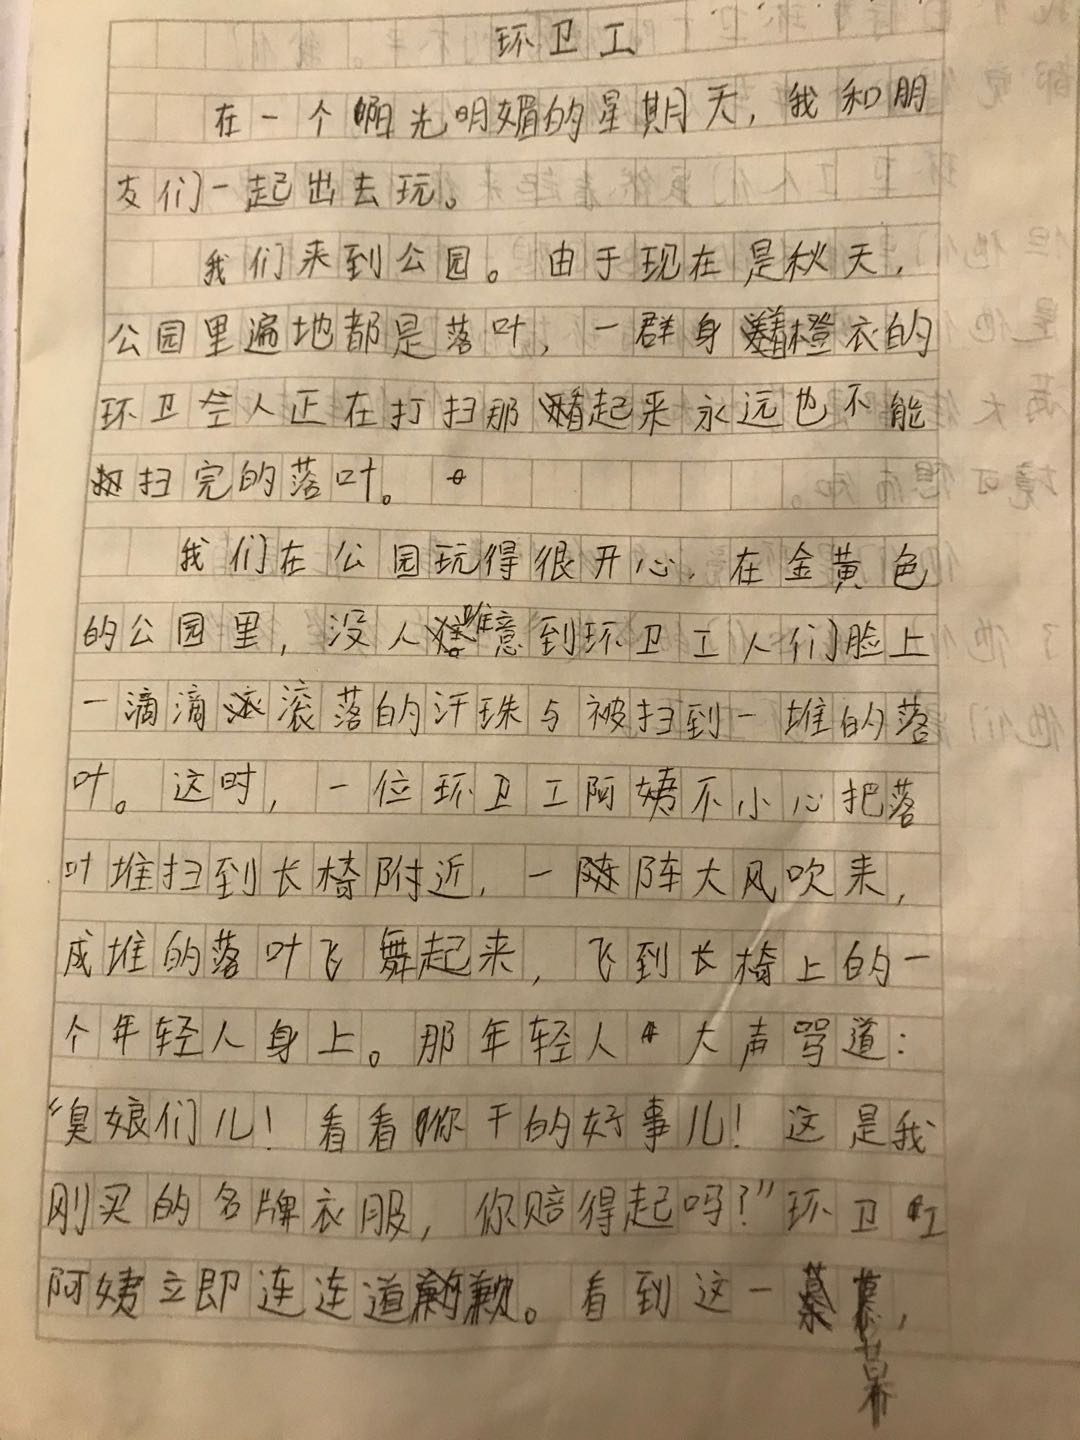 环卫工
在一个阳光明媚的星期天，我和朋
友们一起出去玩。
我们来到公园。由于现在是秋天，
公园里遍地都是落叶，一群身着橙衣的
环卫工人正在打扫那看起来永远也不能
扫完的落叶。
我们在公园玩得很开心，在金黄色
的公园里，没人注意到环卫工人们脸上
一滴滴滚落的汗珠与被扫到一堆的落
叶。这时，一位环卫工阿姨不小心把落
叶堆扫到长椅附近，一阵大风吹来，
成堆的落叶飞舞起来，飞到长椅上的一
个年轻人身上。那年轻人大声骂道：
“臭娘们儿！看看你干的好事儿！这是我
刚买的名牌衣服，你赔得起吗？”环卫工
阿姨立即连连道歉。看到这一幕，